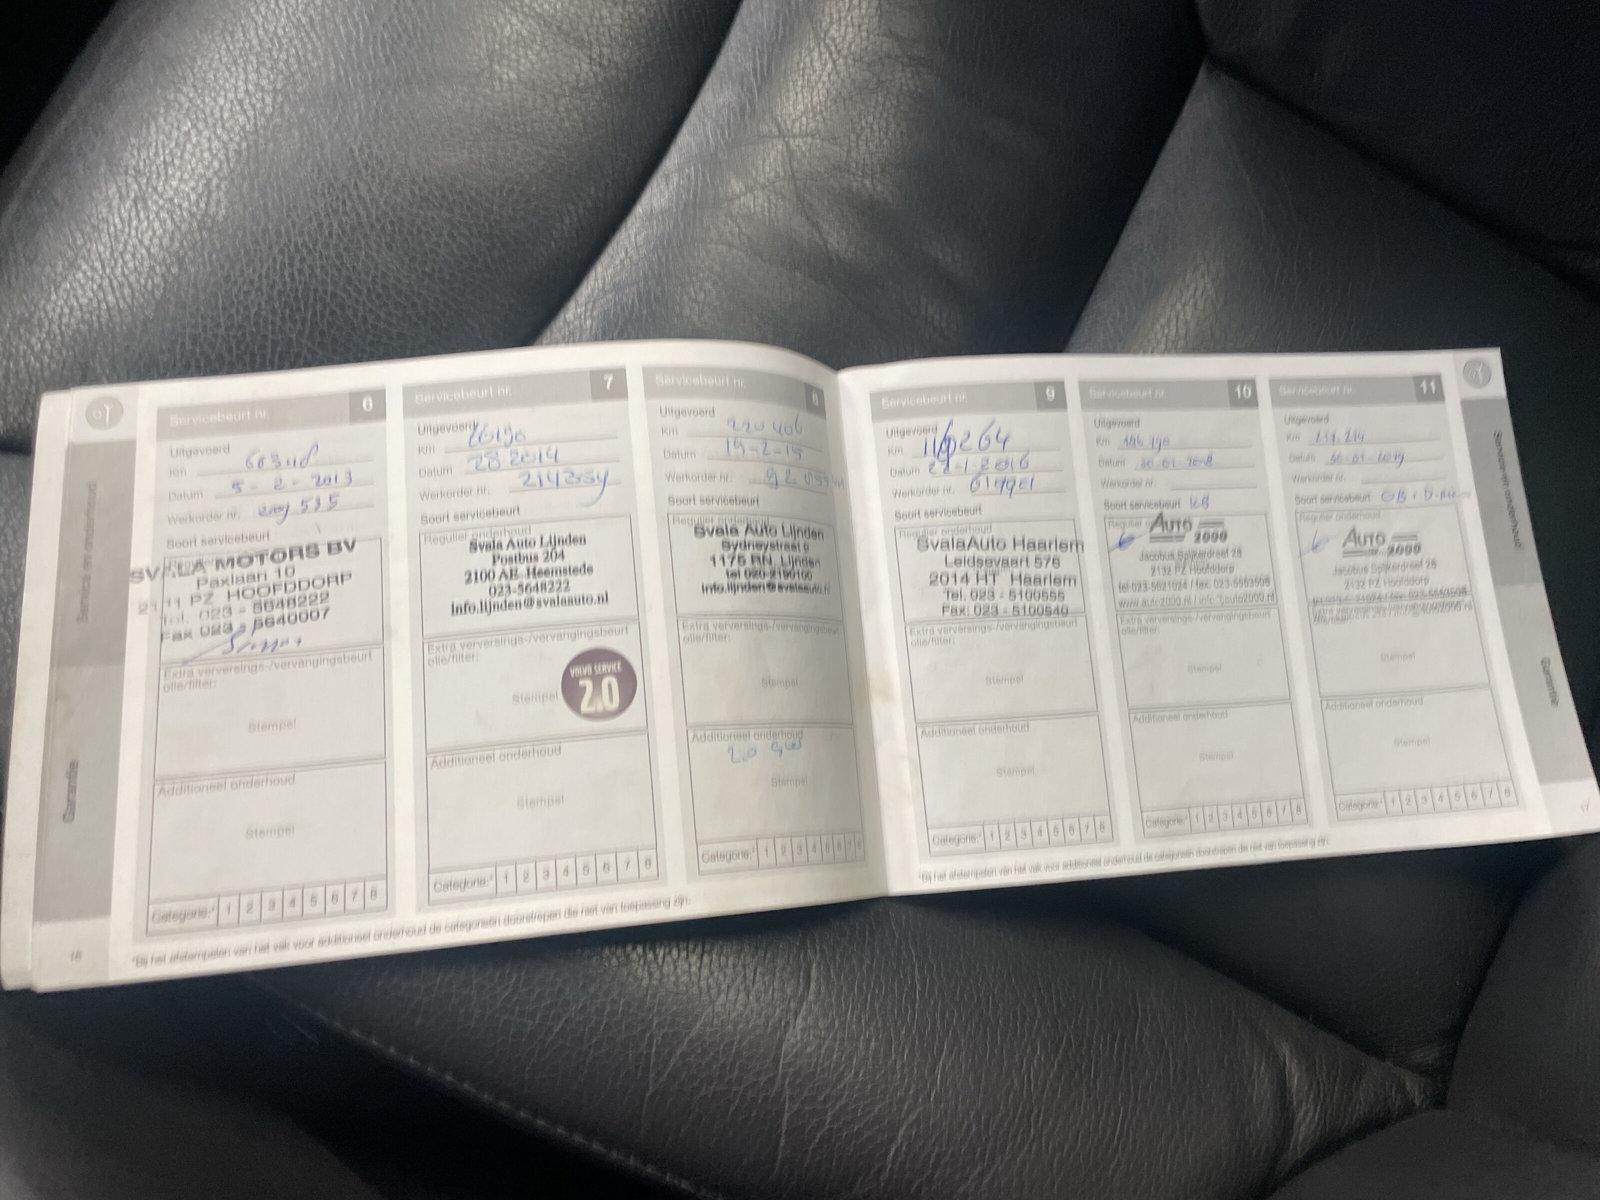 Service en onderhoud
Garantie
16
Servicebeurt nr. 6
Uitgevoerd
Km
Datum 5-2-2013
Werkorder nr. 535
Soort servicebeurt
SVALA MOTORS BV
Paxlaan 10
2131 PZ HOOFDDORP
Tel. 023 - 5648222
Fax 023 - 5640007
Extra verversings-/vervangingsbeurt
olie/filter:
Stempel
Additioneel onderhoud
Stempel
Categorie:* 1 2 3 4 5 6 7 8
Servicebeurt nr. 7
Uitgevoerd
Km
Datum 28 2 2014
Werkorder nr.
Soort servicebeurt
Regulier onderhoud
Svala Auto Lijnden
Postbus 204
2100 AE Heemstede
023-5648222
info.lijnden@svalaauto.nl
Extra verversings-/vervangingsbeurt
olie/filter:
Stempel
VOLVO SERVICE
2.0
Additioneel onderhoud
Stempel
Categorie:* 1 2 3 4 5 6 7 8
Servicebeurt nr. 8
Uitgevoerd
Km
Datum
Werkorder nr.
Soort servicebeurt
Regulier onderhoud
Svala Auto Lijnden
Sydneystraat
1175 RN Lijnden
info.lijnden@svalaauto.nl
Extra verversings-/vervangingsbeurt
olie/filter:
Stempel
Additioneel onderhoud
Stempel
Categorie:* 1 2 3 4 5 6 7 8
*Bij het afstempelen van het vak voor additioneel onderhoud de categorieën doorstrepen die niet van toepassing zijn.
Servicebeurt nr. 9
Uitgevoerd
Km
Datum
Werkorder nr.
Soort servicebeurt
Regulier onderhoud
SvalaAuto Haarlem
Leidsevaart 576
2014 HT Haarlem
Tel. 023 - 5100555
Fax: 023 - 5100540
Extra verversings-/vervangingsbeurt
olie/filter:
Stempel
Additioneel onderhoud
Stempel
Categorie:* 1 2 3 4 5 6 7 8
Servicebeurt nr. 10
Uitgevoerd
Km
Datum 30-01-2018
Werkorder nr.
Soort servicebeurt
Regulier onderhoud
AUTO
2000
Jacobus Spijkerdreef 28
2132 PZ Hoofddorp
Extra verversings-/vervangingsbeurt
olie/filter:
Stempel
Additioneel onderhoud
Stempel
Categorie:* 1 2 3 4 5 6 7 8
Servicebeurt nr. 11
Uitgevoerd
Km
Datum 30-01-2019
Werkorder nr.
Soort servicebeurt
Regulier onderhoud
AUTO
2000
Jacobus Spijkerdreef 28
2132 PZ Hoofddorp
Stempel
Additioneel onderhoud
Stempel
Categorie:* 1 2 3 4 5 6 7 8
*Bij het afstempelen van het vak voor additioneel onderhoud de categorieën doorstrepen die niet van toepassing zijn.
Service en onderhoud
Garantie
17